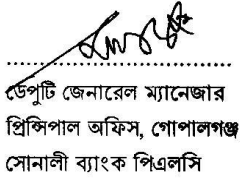 ডেপুটি জেনারেল ম্যানেজার
প্রিন্সিপাল অফিস, গোপালগঞ্জ
সোনালী ব্যাংক পিএলসি